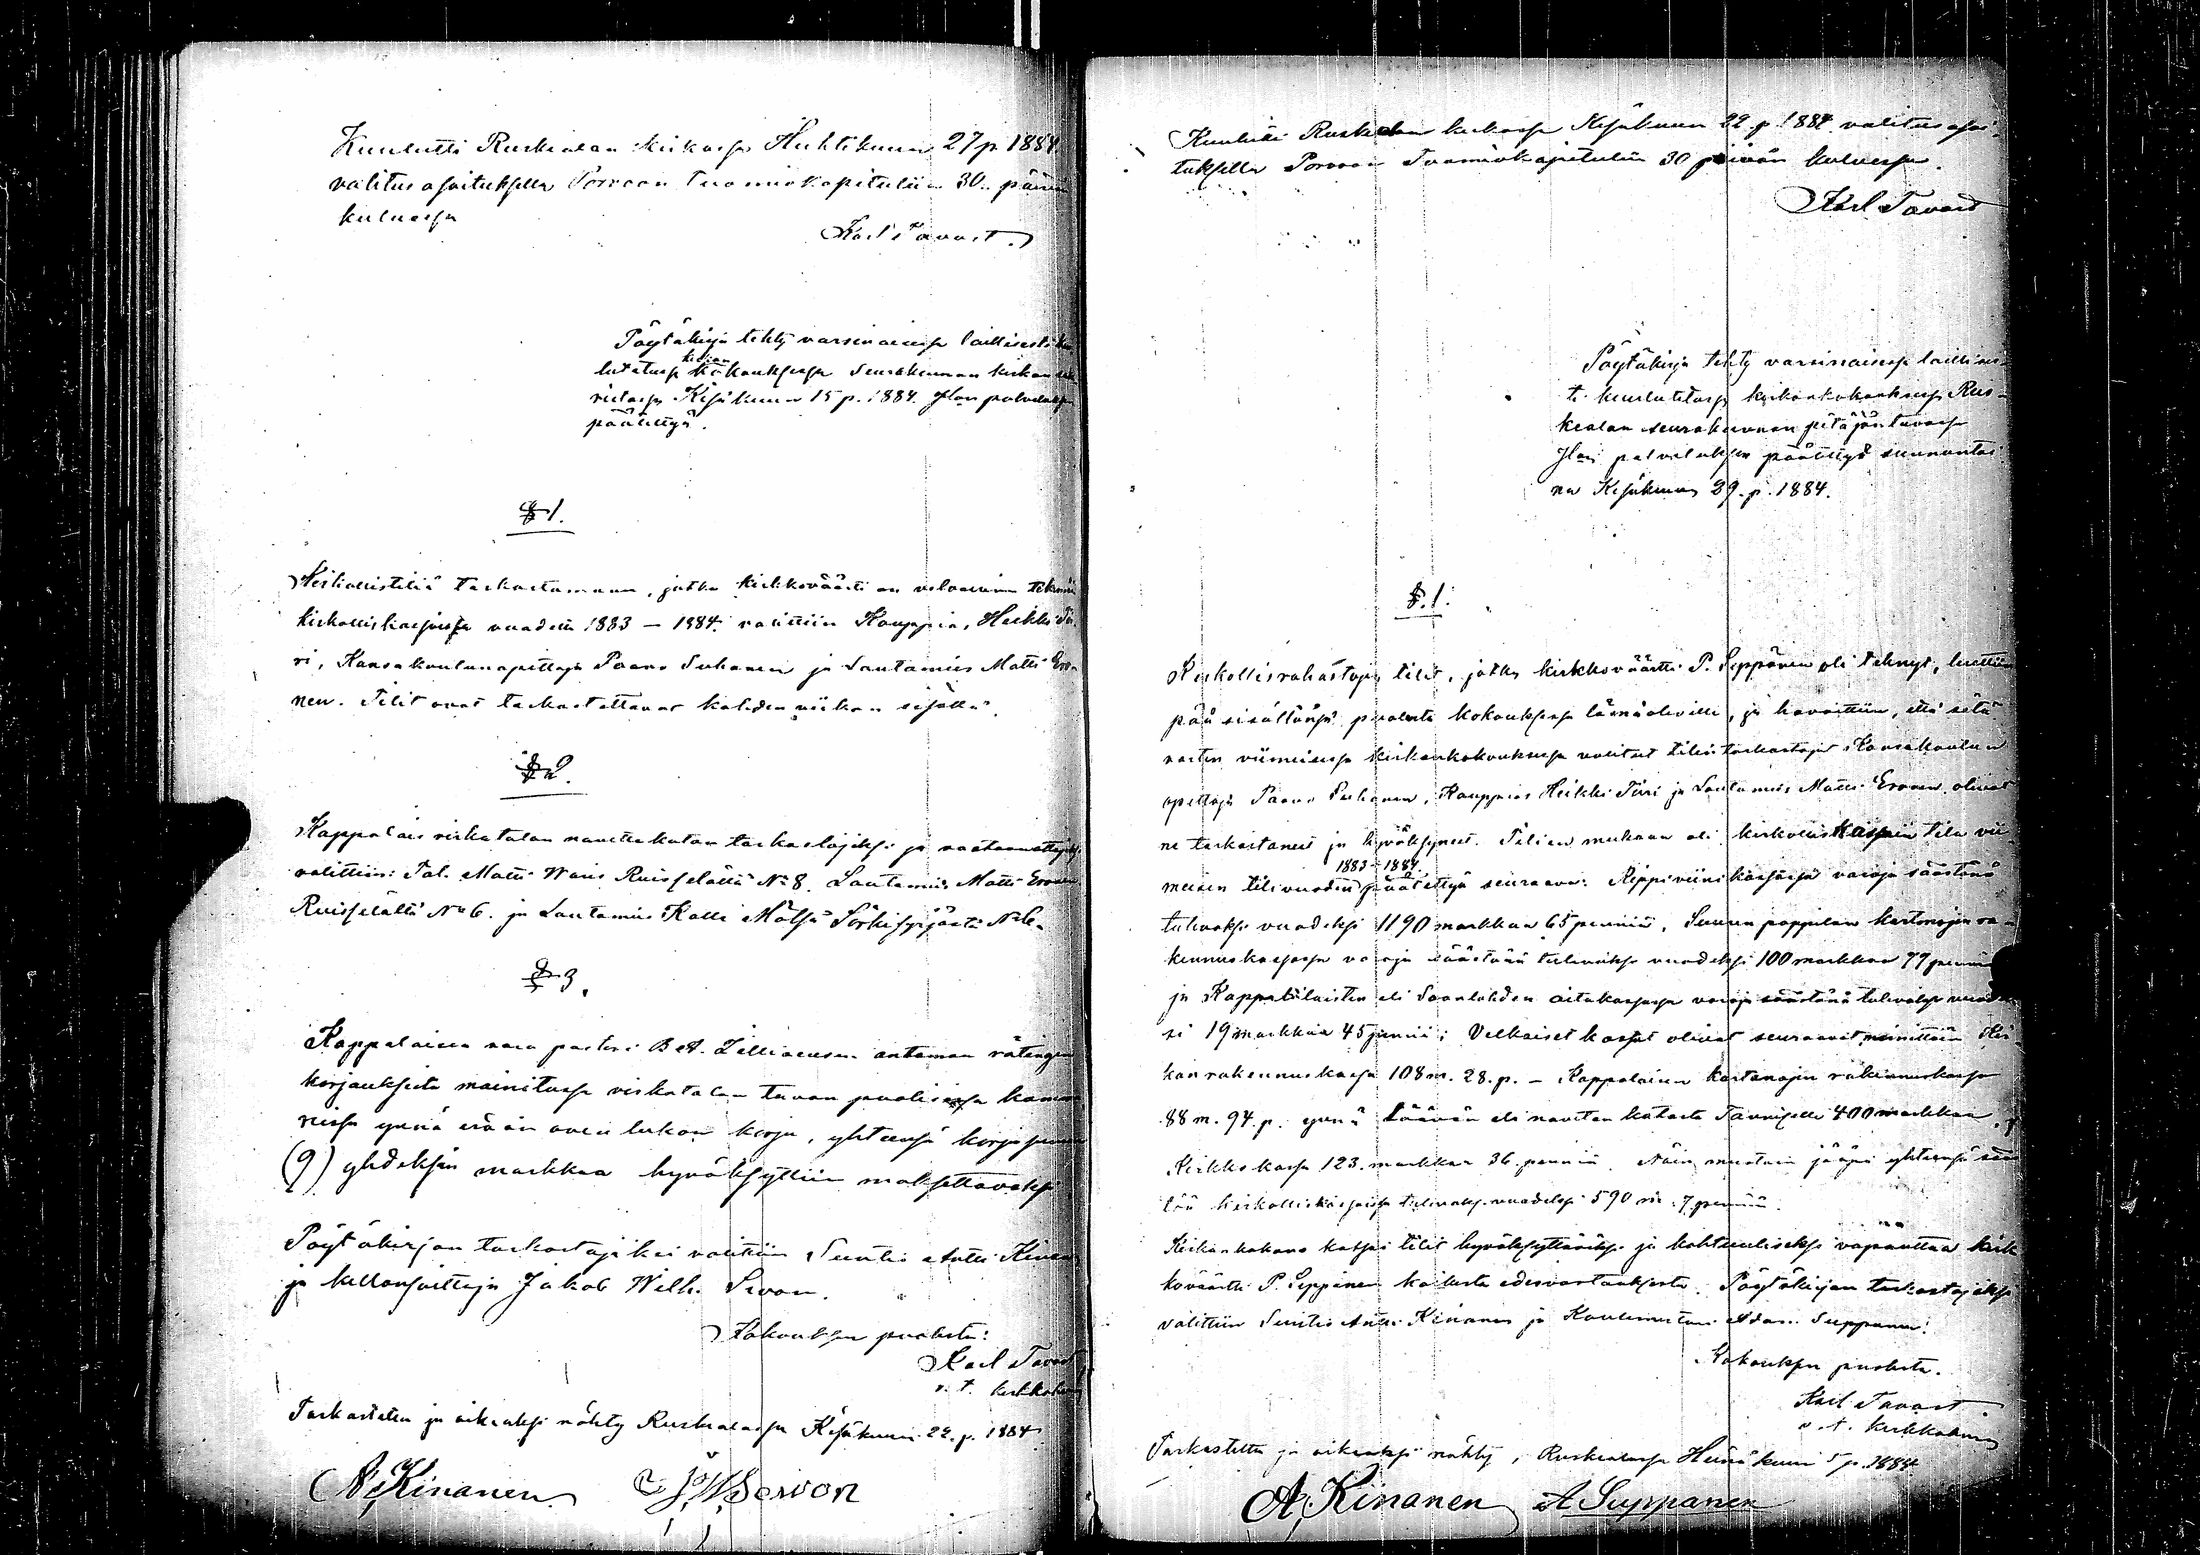 Kuulutti Ruskealan kirkossa Huhtikuun 27 p. 1884
valitus osoituksella Porvoon tuomiokapituliin 30. päivän
kuluessa
Karl Tavast.
Pöytäkirja tehty varsinaisessa laillisesti kuu
lutetussa kirkon kokouksessa Seurakunnan kirkon sak
ristiassa Kesäkuun 15 p. 1884. Jlan palveluksen
päätettyä.
§ 1.
Kirkollistiliä tarkastamaan, jotka kirkkoväärti on velvollinen tekemään
kirkolliskassoista vuodelta 1883 – 1884. valittiin Kauppias Heikki Tii
ri, Kansakoulunopettaja Paavo Suhonen ja Lautamies Matti Ero
nen. Tilit ovat tarkastettavat kahden viikon sisällä.
§ 2.
Kappalais virkatalon navettakaton tarkastajiksi ja vastaanottajiksi
valittiin: Tal. Matti Waris Ruisselältä No 8. Lautamies Matti Eronen
Ruisselältä No 6. ja Lautamies Kalle Mätsä Särkisyrjästä No 6.
§ 3.
Kappalaisen vara pastori B A. Zilliacusen antaman rätingin
korjauksista mainitussa virkatalon tuvan puolisissa kama
rissa ynnä erään oven lukon korju, yhteensä korjaussumma
(9) yhdeksän markkaa hyväksyttiin maksettavaksi
Pöytäkirjan tarkastajiksi valittiin Suntio Antti Kinanen
ja kellonsoittaja Jakob Wilh. Sevon.
Kokouksen puolesta:
Karl Tavast
v. t. kirkkoherra
Tarkastettu ja oikeaksi nähty Ruskealassa Kesäkuun 22. p. 1884
A. Kinanen J. W. Sevon
Kuulutti Ruskealan kirkossa Kesäkuun 22 p. 1884 valitus osoi-
tuksella Porvoon Tuomiokapituliin 30 päivän kuluessa.
Karl Tavast
Pöytäkirja tehty varsinaisessa laillises-
ti kuulutetussa kirkonkokouksessa Rus-
kealan seurakunnan pitäjäntuvassa
Jlan palveluksen päätettyä sunnuntai
na Kesäkuun 29. p. 1884.
§. 1.
Kirkollisrahastojen tilit, jotka kirkkoväärtti P. Seppänen oli tehnyt, luettiin
pää sisältönsä puolesta kokouksessa läsnäoleville, ja havaittiin, että sitä
varten viimeisessä kirkonkokouksessa valitut tilintarkastajat Kansakoulun
opettaja Paavo Suhonen, Kauppias Heikki Tiiri ja Lautamies Matti Eronen olivat
ne tarkastaneet ja hyväksyneet. Tilien mukaan oli kirkolliskassain tila vii
1883–1884
meisen tilivuoden päätettyä seuraava: Rippiviinikassassa varoja säästönä
tulevaksi vuodeksi 1190 markkaa 65 penniä, Suuren pappilan kartanojen ra
kennuskassassa varoja säästönä tulevaksi vuodeksi 100 markkaa 77 penniä
ja Kappalaisten eli Soanlahden aitakassassa varoja säästönä tulevaksi vuodek
si 19 markkaa 45 penniä; Velkaiset kassat olivat seuraavat nimittäin Kir
kon rakennuskassa 108 m. 28. p. – Kappalaisen kartanojen rakennuskassa
88 m. 94 p. ynnä Läävän eli navetan katosta Tanniselle 400 markkaa ja
Kirkko kassa 123. markkaa 36. penniä. Näin muodoin jääpi yhteensä sääs
töä kirkolliskassoissa tulevaksi vuodeksi 590 m. 7 penniä.
Kirkonkokous katsoi tilit hyväksyttäviksi ja kohtuulliseksi vapauttaa kirk
koväärtti P. Seppänen kaikesta edesvastauksesta. Pöytäkirjan tarkastajiksi
valittiin Suntio Antti Kinanen ja Koulumestari Adam Suppanen.
Kokouksen puolesta.
Karl Tavast
v. t. kirkkoherra
Tarkastettu ja oikeaksi nähty, Ruskealassa Heinäkuun 5 p. 1884
A. Kinanen A Suppanen